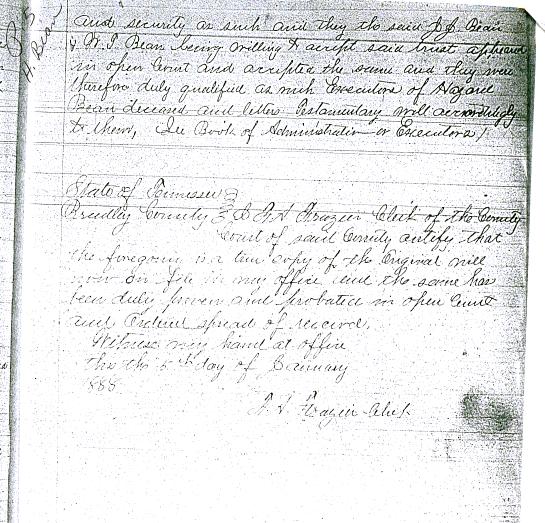 H. Bean
and security as such and they the said J. C. Bean
& W. T. Bean being willing to accept said trust appeared
in open Court and accepted the same and they were
therefore duly qualified as such Executors of Hazard
Bean deceased and letters Testamentary will accordingly
to them, See Book of Administration or Executors)
State of Tennessee }
Bradley County } I Frazier Clerk of the County
Court of said County certify that
the foregoing is a true copy of the Original will
now on file in my office and the same has
been duly proven and probated in open Court
and Ordered spread of record.
Witness my hand at office
this the 5th day of January
1888
Frazier Clerk